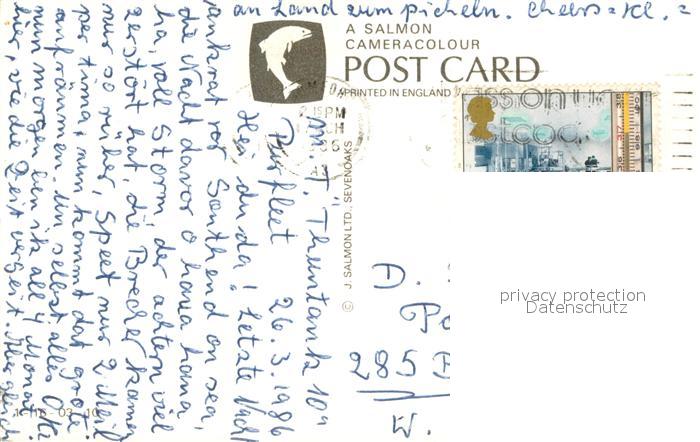 an Land zum picheln. Cheers = Kl. =
A SALMON
CAMERACOLOUR
POST CARD
PRINTED IN ENGLAND
15 PM
© J. SALMON LTD., SEVENOAKS
M.T. "Thuntank 10"
Purfleet 26.3.1986
Hei du da! Letzte Nacht
ankrat vor Southend on sea,
die Nacht davor o haua haua
ha, voll Storm der achtern viel
zerstört hat, die Brecher kamen
nur so rüber, Speet nur 2 Meil
per timg, nun kommt dat grote
aufräumen. Un selbst alles Oki
nun morgen ben ik all 4 Monat
hier, wie die Zeit vergeit.
D.
285
W.
1-16-03-10
privacy protection
Datenschutz